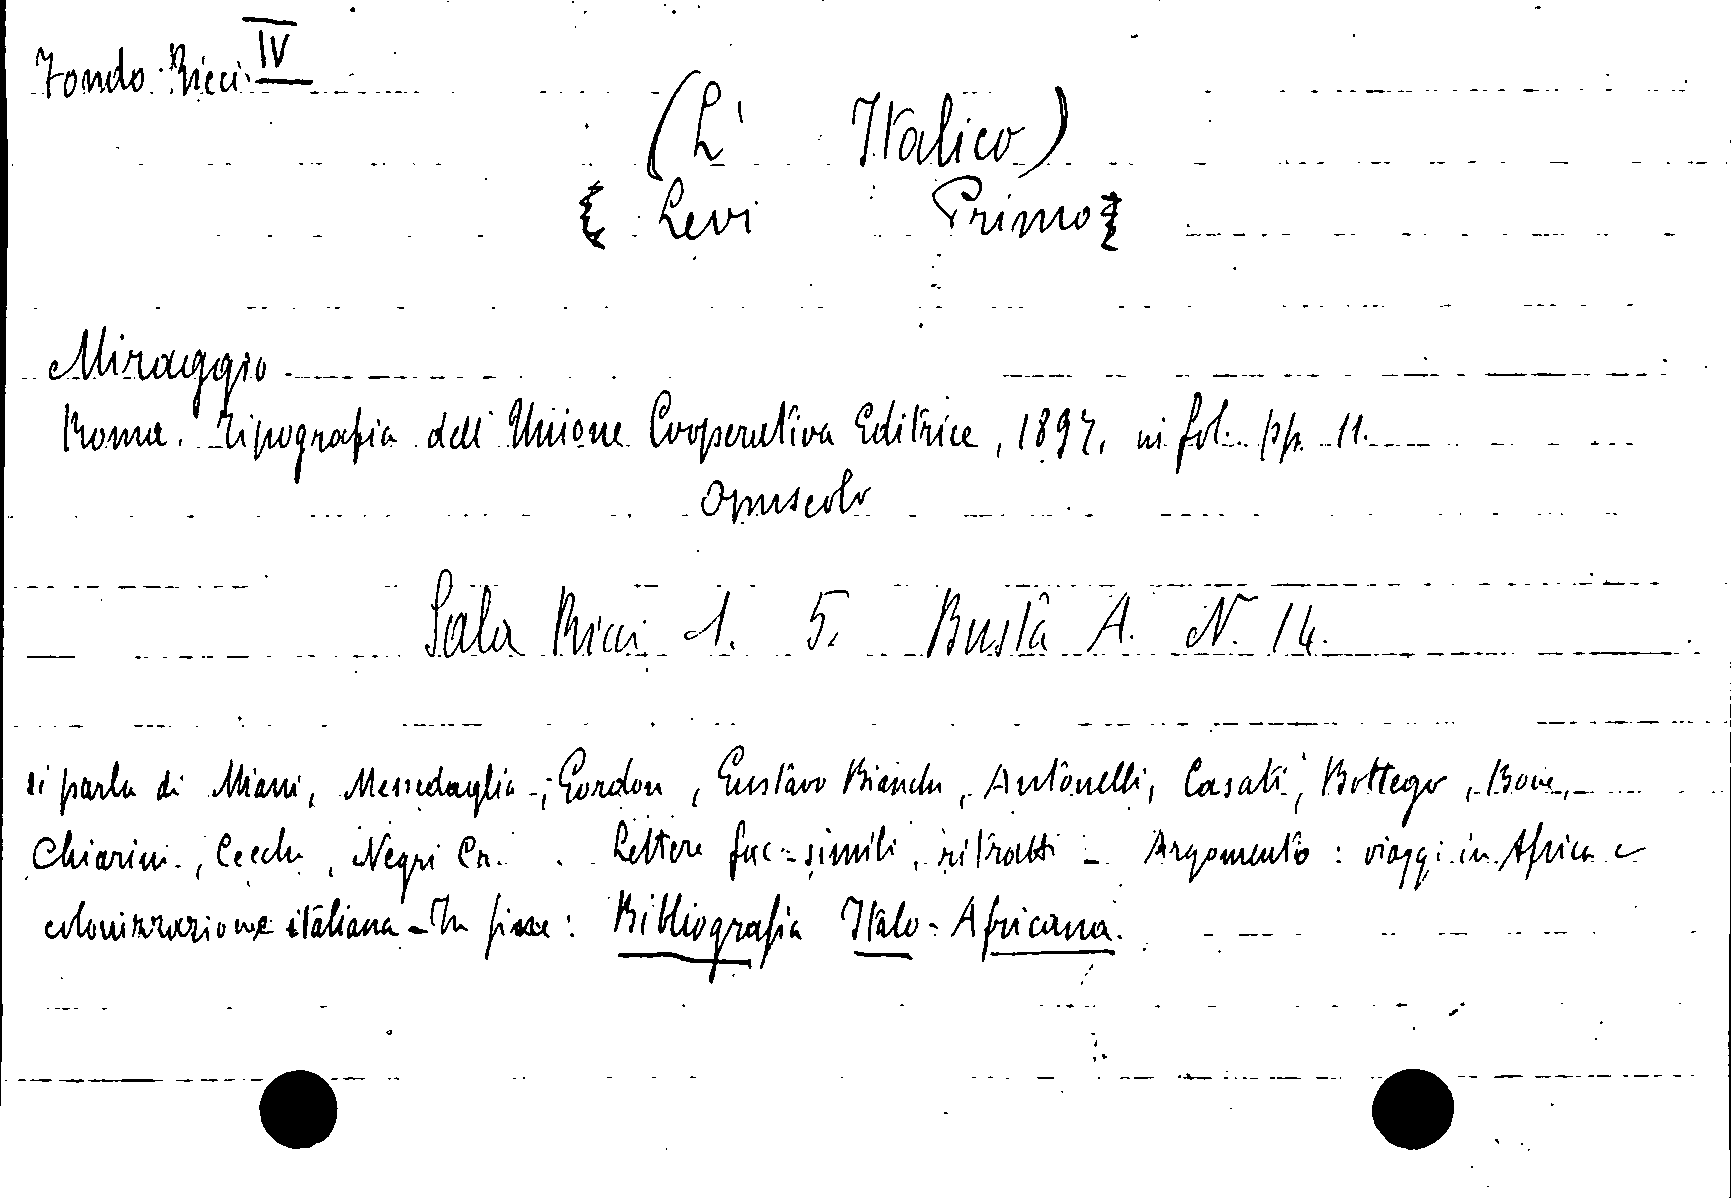 Fondo Ricci IV
(L' Italico)
Levi Primo
Miraggio
Roma. Tipografia dell'Unione Cooperativa Editrice, 1897. in fol. pp. 11.
Opuscolo
Sala Ricci 1. 5. Busta A. N. 14.
si parla di Miani, Messedaglia, Gordon, Gustavo Bianchi, Antonelli, Casati, Bottego, Bove,
Chiarini, Cecchi, Negri Cr. Lettere fac-simili, ritratti - Argomento: viaggi in Africa e
colonizzazione italiana - In fine: Bibliografia Italo-Africana.